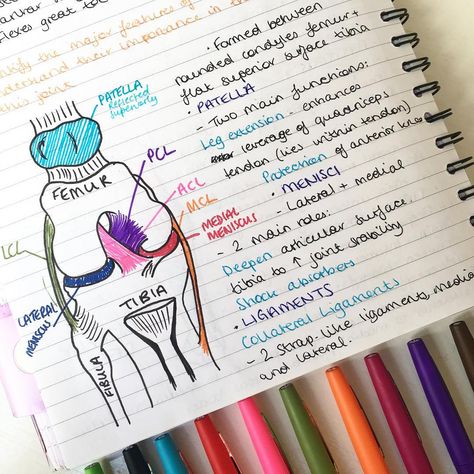 flexes great toe
identify the major features of
understand their importance in the
this joint
PATELLA
Reflected
superiorly
FEMUR
PCL
ACL
MCL
MEDIAL
MENISCUS
LCL
LATERAL
MENISCUS
TIBIA
FIBULA
• Formed between
rounded condyles femur +
flat superior surface tibia
• PATELLA
- Two main functions:
Leg extension - enhances
leverage of quadriceps
tendon (lies within tendon)
Protection of anterior knee
• MENISCI
- Lateral + medial
- 2 main roles:
Deepen articular surface
tibia to ↑ joint stability
Shock absorbers
• LIGAMENTS
Collateral Ligaments
- 2 strap-like ligaments, medial
and lateral.